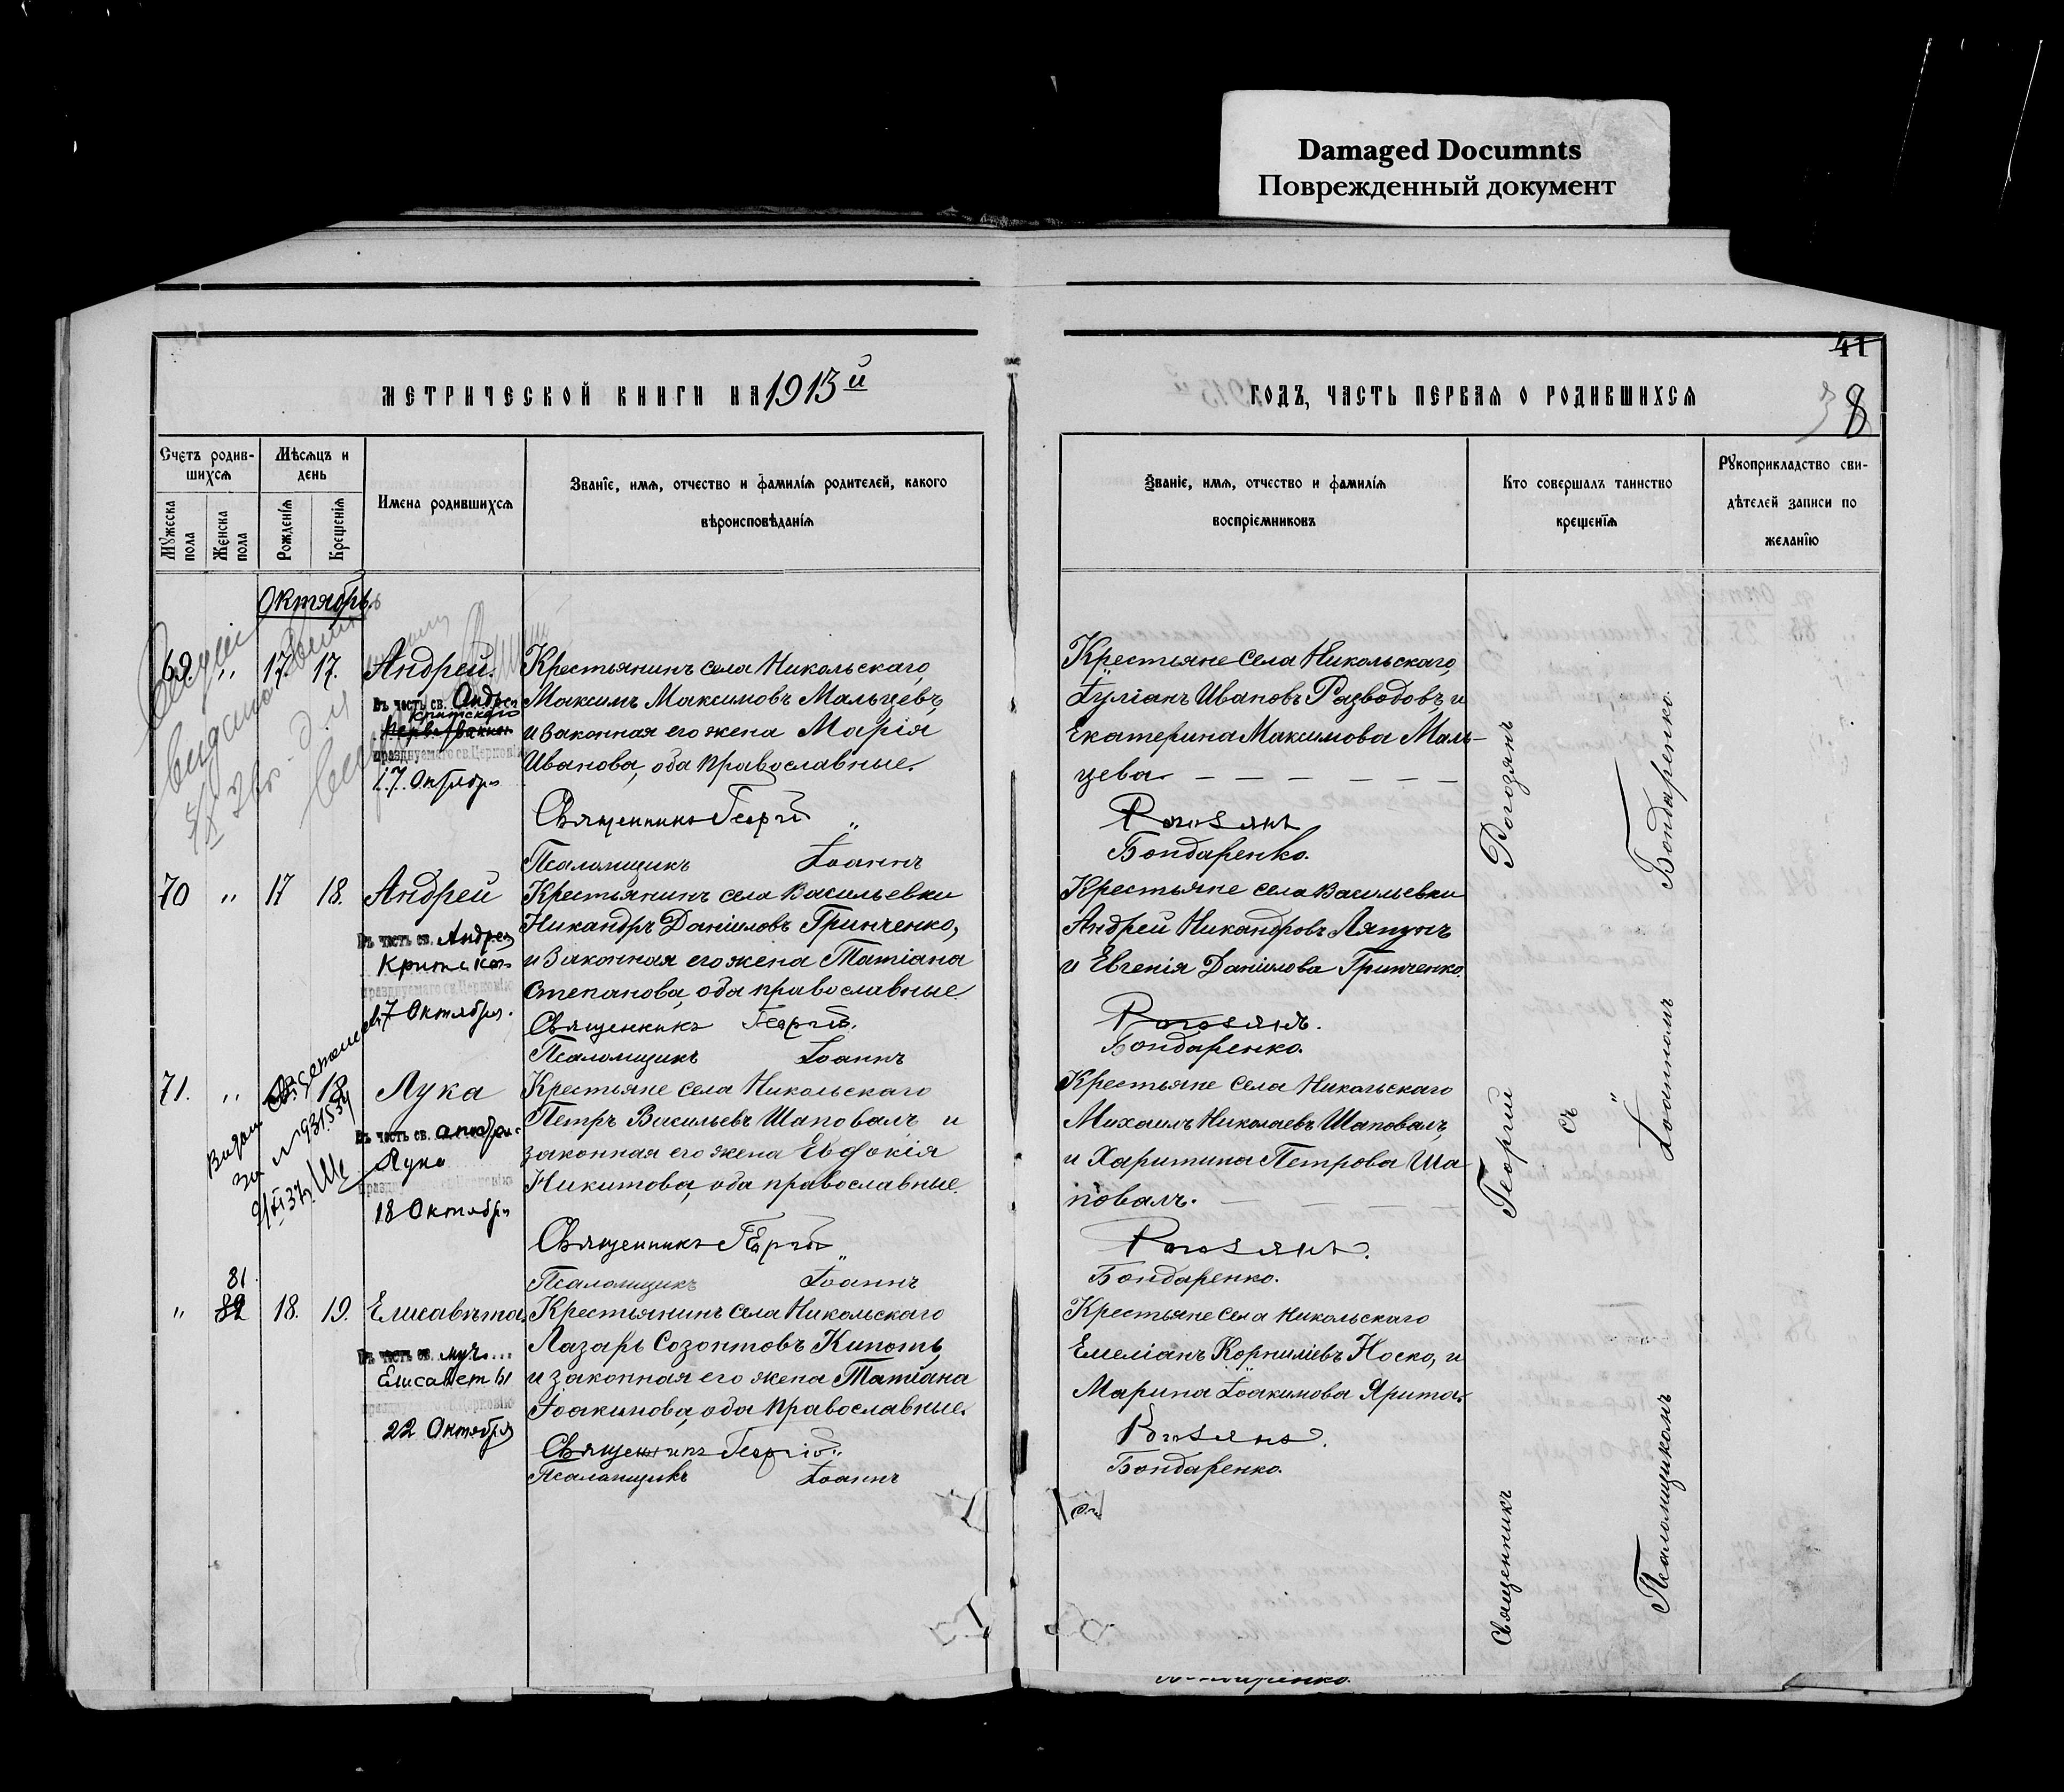 Damaged Documnts
Поврежденный документ
41
МЕТРИЧЕСКОЙ КНИГИ НА 1913й
ГОДЪ, ЧАСТЬ ПЕРВАЯ О РОДИВШИХСЯ
8
Счетъ родив-
шихся
Мужеска
пола
Женска
пола
Мѣсяцъ и
день
Рожденія
Крещенія
Имена родившихся
Званіе, имя, отчество и фамилія родителей, какого
вѣроисповѣданія
Званіе, имя, отчество и фамилія
воспріемниковъ
Кто совершалъ таинство
крещенія
Рукоприкладство сви-
дѣтелей записи по
желанію
Октябрь
69. " 17. 17. Андрей.
Въ честь св. Андрея
критскаго
Первозванна
празднуемаго св. Церковію
17. Октября
Крестьянинъ села Никольскаго,
Максимъ Максимовъ Мальцевъ,
и законная его жена Марія
Иванова, оба православные.
Священникъ Георгій
Псаломщикъ Іоаннъ
Крестьяне села Никольскаго,
Іуліанъ Ивановъ Разводовъ, и
Екатерина Максимова Маль-
цева
Рогозянъ
Бондаренко.
70 " 17 18. Андрей
Въ честь св. Андрея
Критска
празднуемаго св. Церковію
17 Октября.
Крестьянинъ села Васильевки
Никандръ Даніиловъ Гринченко,
и законная его жена Татіана
Степанова, оба православные.
Священникъ Георгій.
Псаломщикъ Іоаннъ
Крестьяне села Васильевки
Андрей Никандровъ Ляпунъ
и Евгенія Даніилова Гринченко.
Рогозянъ.
Бондаренко.
71. " 18 Лука
Въ честь св. апостр.
Луки
празднуемаго св. Церковію
18 Октября
Крестьяне села Никольскаго
Петръ Васильевъ Шаповалъ и
законная его жена Евдокія
Никитова, оба православные.
Священникъ Георгій
Псаломщикъ Іоаннъ
Крестьяне села Никольскаго
Михаилъ Николаевъ Шаповалъ,
и Харитина Петрова Ша
повалъ.
Рогозянъ.
Бондаренко.
81.
" 82 18. 19. Елисавѣта.
Въ честь св. муч...
Елисаветы
празднуемаго св. Церковію
22 Октября
Крестьянинъ села Никольскаго
Лазарь Созонтовъ Кипоть,
и законная его жена Татіана
Іоакимова, оба православные.
Священникъ Георгій
Псаломщикъ Іоаннъ
Крестьяне села Никольскаго
Емеліанъ Корниліевъ Носко, и
Марина Іоакимова Ярита.
Рогозянъ.
Бондаренко.
Священникъ Георгій Рогозянъ
съ
Псаломщикомъ Іоанномъ Бондаренко.